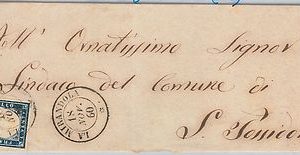 All' Ornatissimo Signor
Sindaco del Comune di
S. Possidon
LA MIRANDOLA
60